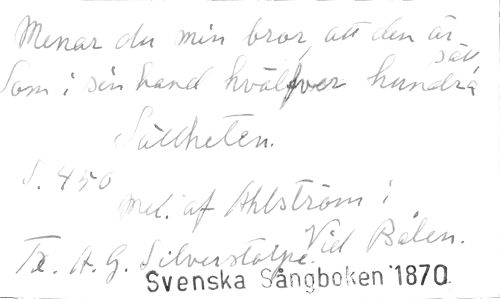 Menar du min bror, att den är säll
Som i sin hand hvälfver hundra
Sällheten.
S. 450
Mel. af Ahlström i
Tx. A. G. Silverstolpe. Vid Bålen.
Svenska Sångboken 1870.